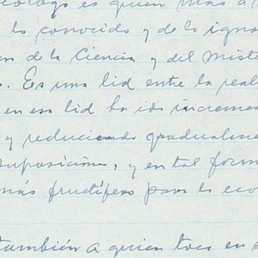 ólogo es quien más a
lo conocido y de lo igno
de la Ciencia y del Miste
Es una lid entre la real
en esa lid ha ido increme
y reduciendo gradualme
suposición, y en tal form
más fructífero para la eco
también a quien toca en